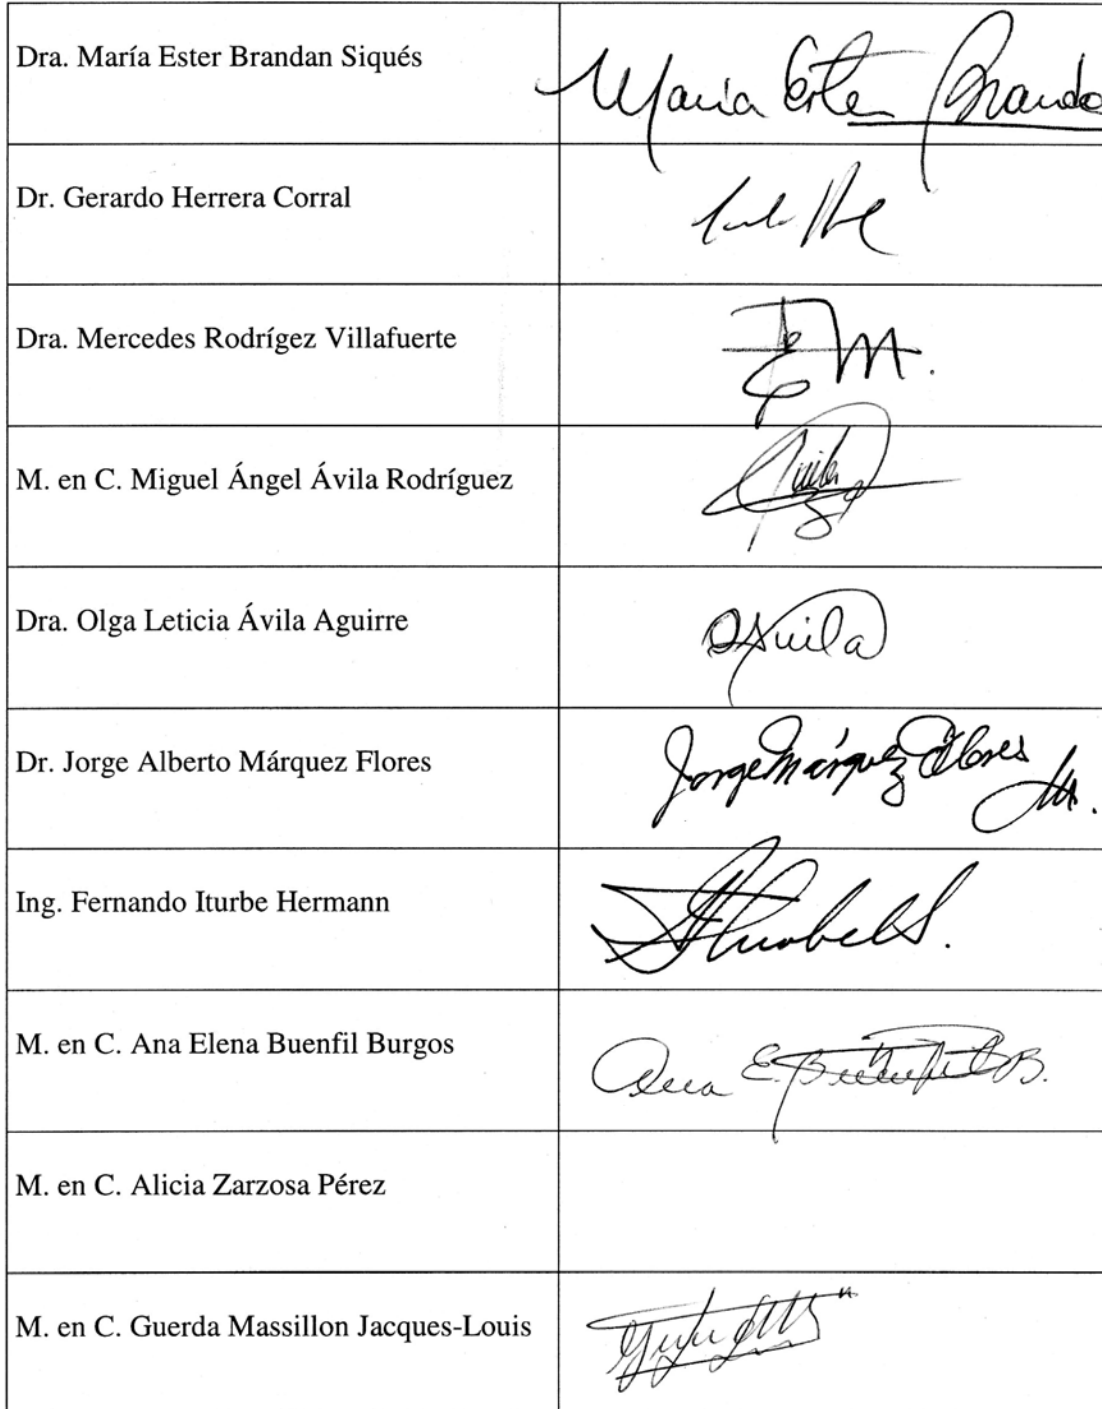 Dra. María Ester Brandan Siqués
María Ester Branda
Dr. Gerardo Herrera Corral
Dra. Mercedes Rodrígez Villafuerte
M. en C. Miguel Ángel Ávila Rodríguez
Dra. Olga Leticia Ávila Aguirre
OAvila
Dr. Jorge Alberto Márquez Flores
Jorge Márquez Flores
Ing. Fernando Iturbe Hermann
M. en C. Ana Elena Buenfil Burgos
Ana E. Buenfil B.
M. en C. Alicia Zarzosa Pérez
M. en C. Guerda Massillon Jacques-Louis